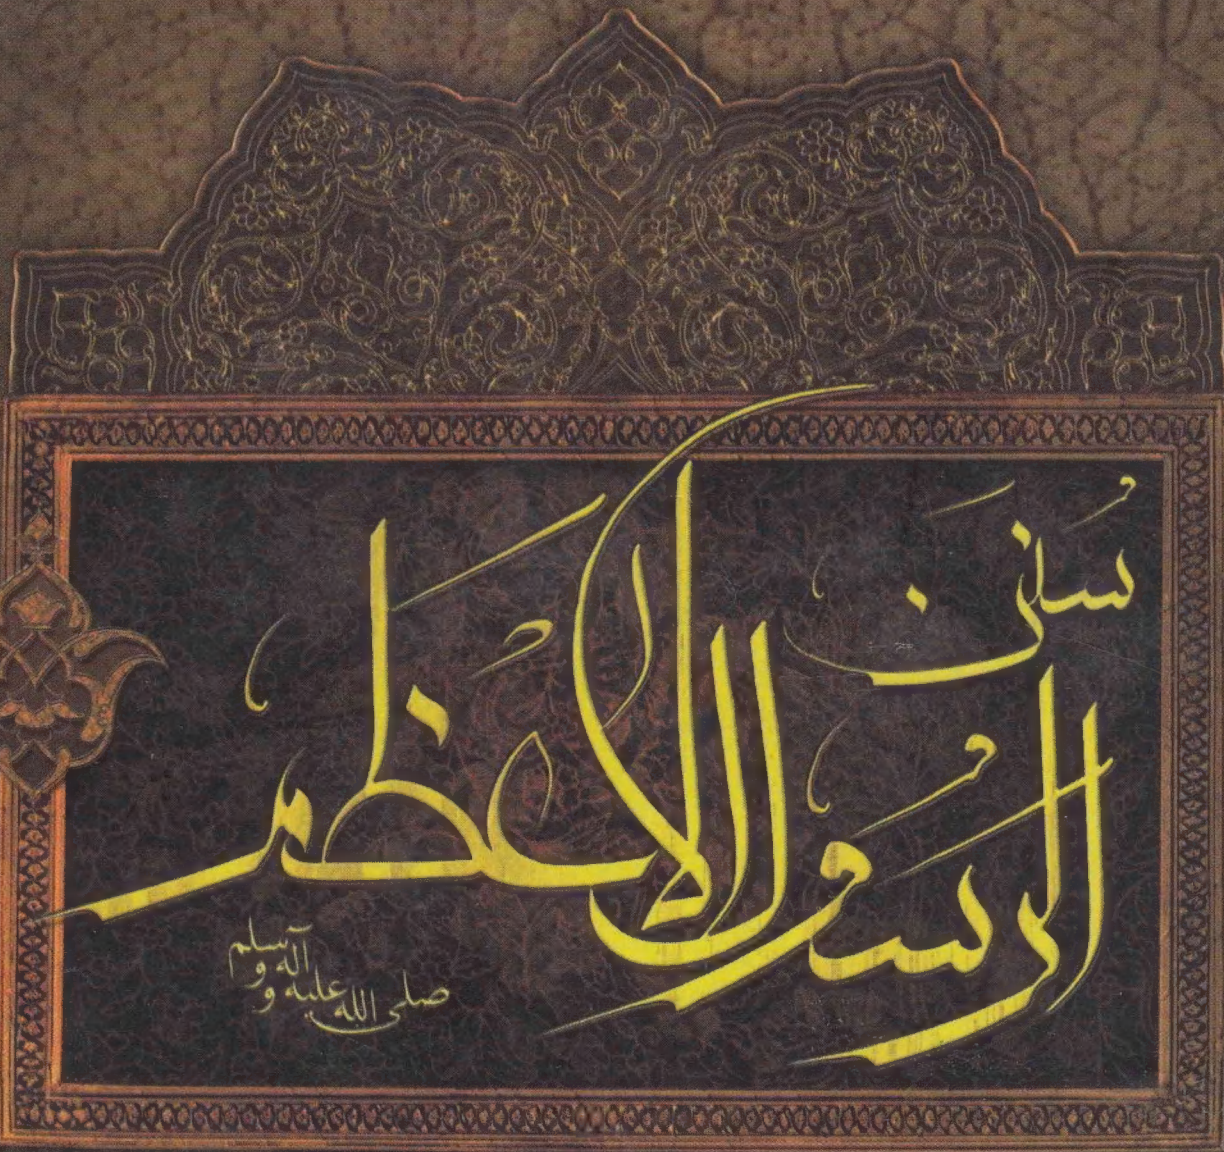 سُنَن
الرسول الأعظم
صلى الله عليه وآله وسلم